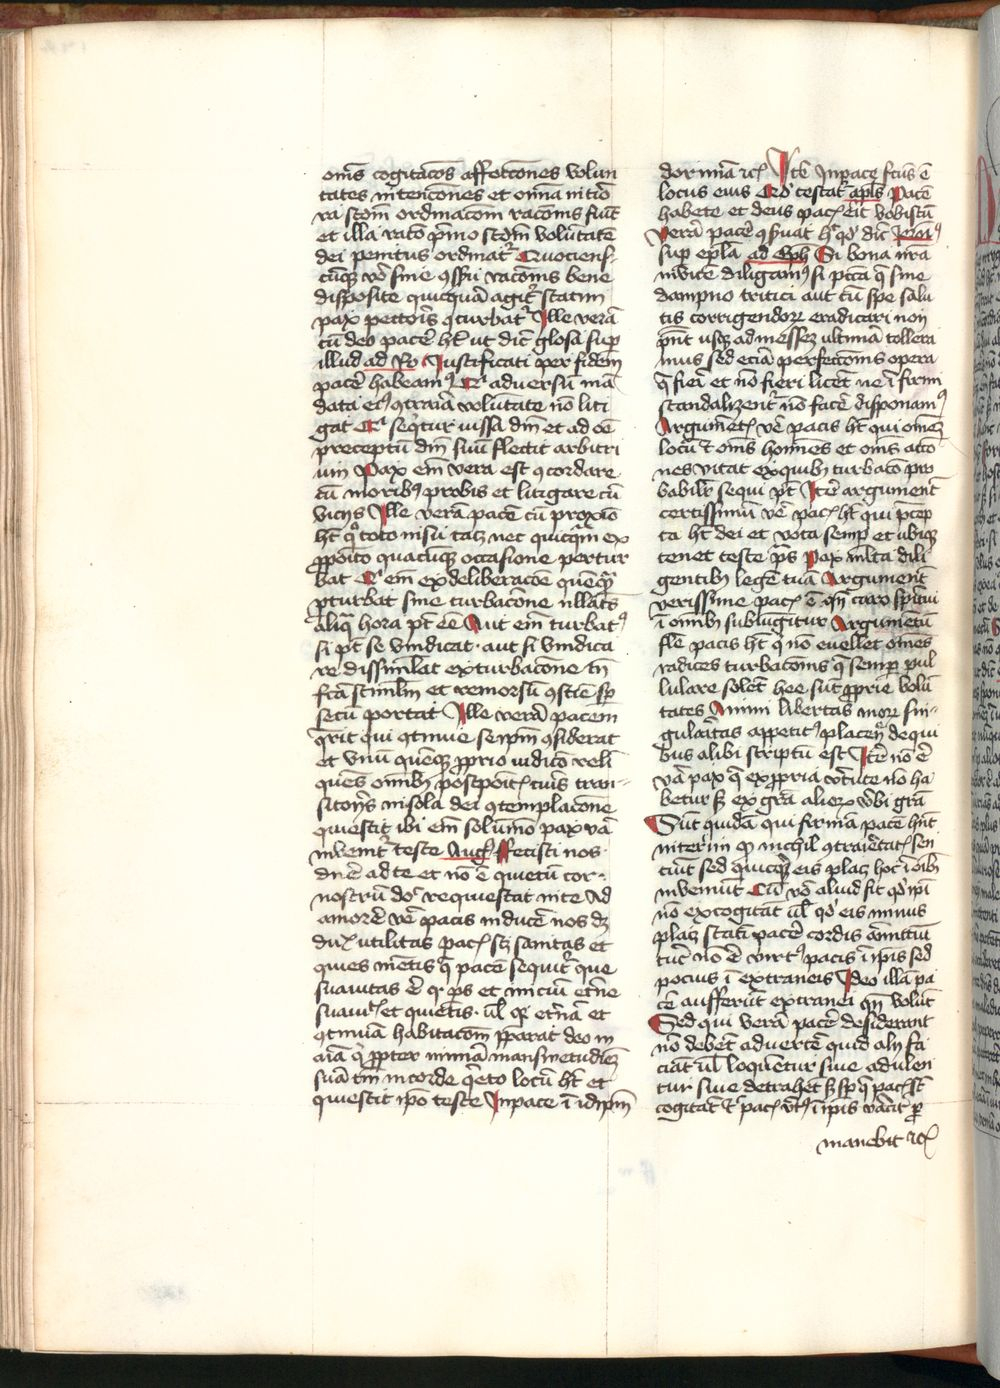 om̄s cogitacōes affectōnes volun
tates intencōnes et om̄ia initio
ra scd̄m ordinacōm racōnis sūt
et illa rato p̄mo scd̄m volūtatē
dei penitus ordinat᷑ Quociens
cūq; v̄o sine ꝯsensu racōnis bene
disposite quicquā agit᷑ statim
pax pectoris ꝯturbat᷑ Ille verā
cū deo pacē hꝫ ut dic̄ glosa sup
illud ad Ro Iustificati per fidem
pacē habeam᷒ adversū mā
data ei᷒ ꝯtraiā volūtate nō liti
gat seq̄tur iussa dn̄i et ad oē
preceptū dn̄i suū flectit arbitri
um Pax em̄ vera est ꝯcordare
cū moribꝫ probis et litigare cū
vicijs Ille verā pacē cū proxīo
hꝫ q̄ toto nisu nec quicq̄m ex
ꝓposito quacūq; occasione pertur
bat em̄ ex deliberacōe quēq̄ꝫ
ꝑturbat sine turbacōne nllat᷒
aliq̄ hora pt̄ eē Aut em̄ turbat᷒
si pt̄ se vindicat aut si vindica
re dissimilat ex turbacōne tn̄
fcā stimlm̄ et remorsū ꝯscīe sp̄
secū portat Ille verā pacem
q̄rit qui ꝯtinue seipm̄ ꝯsiderat
et vnū quēq; ꝓprio iudicō reli
quēs om̄ibꝫ postpoit᷑ tuis tran
sitorijs in sola dei ꝯtemplacōne
quiescit ibi em̄ solūmō pax vā
invenit᷑ teste Aug᷒ Fecisti nos
dn̄e ad te et nō ē quietū cor
nostrū do᷑ requiescat in te Ad
amorē vē pacis inducē nos dꝫ
utilitas pac sꝫ sanitas et
quies mētis q̄ pacē sequit᷑ que
suavitas ē ꝑs et iniciū et̄ne
suavit et quietis ul̄ et̄nā et
ꝯtinuā habitacōm p̄parat deo in
aīa q̄ ꝓpter nimiā mansuetudīeꝫ
suā tm̄ in corde q̄eto locū hꝫ et
quiescit ip̄o teste In pace ī idip̄m
dormiā rc̄ Itē In pace fcūs ē
locus eius testat᷑ apl̄s Pacē
habete et deus pac erit vobiscū
Verā pacē ꝯsuat hꝰ qd̄ dic̄
sup ep̄lā ad Eph Si bona nr̄a
in vice diligam᷒ si pccā q̄ sine
dampno tritici aut cū spe salu
tis corrigendoꝝ eradicari non
pn̄t usq; ad messeꝫ ultimā tollera
mus sed eciā perfectōnis opera
q̄ fieri et nō fieri licet ne īfirmi
scandalizent᷑ nō facē disponam᷒
Argumēt vē pacis hꝫ qui om̄eꝫ
locū ⁊ om̄s homīes et om̄s actō
nes vitat ex quibꝫ turbatō pro
babilr̄ sequi pt̄ Itē argumēt
certissimū vē pac hꝫ qui p̄cep
ta hꝫ dei et vota semp et ubiq;
tenet teste ꝑs Pax mlta dili
gentibꝫ legē tuā Argumēt
verissime pac ē qn̄ caro sp̄itui
ī om̄ibꝫ subiugitur Argumētū
fle pacis hꝫ q̄ nō evellet om̄es
radices turbacōnis q̄ semp pul
lulare solēt hee sūt ꝓprie volū
tates Animi libertas moꝝ sin
gularitas appetit᷒ placen de qui
bus alibi scriptū est Itē nō ē
vā pax q̄ ex ꝓpria v̄tute nō ha
betur sꝫ ex grā alioꝝ v̄bi grā
Sūt quidā qui firmā pacē hn̄t
interim ꝙ nichil ꝯtrarietat sen
tiūt sed quicq̄ eis plaꝫ hoc ī oībꝫ
inveniūt Cū v̄o aliud fit qd̄ ip̄i
nō excogitāt ul̄ qd̄ eis minus
plaꝫ statī pacē cordis amittūt
tūc nō ē virt᷒ pacis ī ip̄is sed
pocius ī extraneis Ideo illā pa
cē aufferūt extranei qn̄ volūt
Sed qui verā pacē desiderant
nō debēt advertē quid alij fa
ciāt ul̄ loquentur sive adulen
tur sive detrahēt sꝫ sp̄ q̄ pac st̄
cogitāt ⁊ pac v̄t᷒ ī ip̄is vacit ꝑ
manebit rc̄